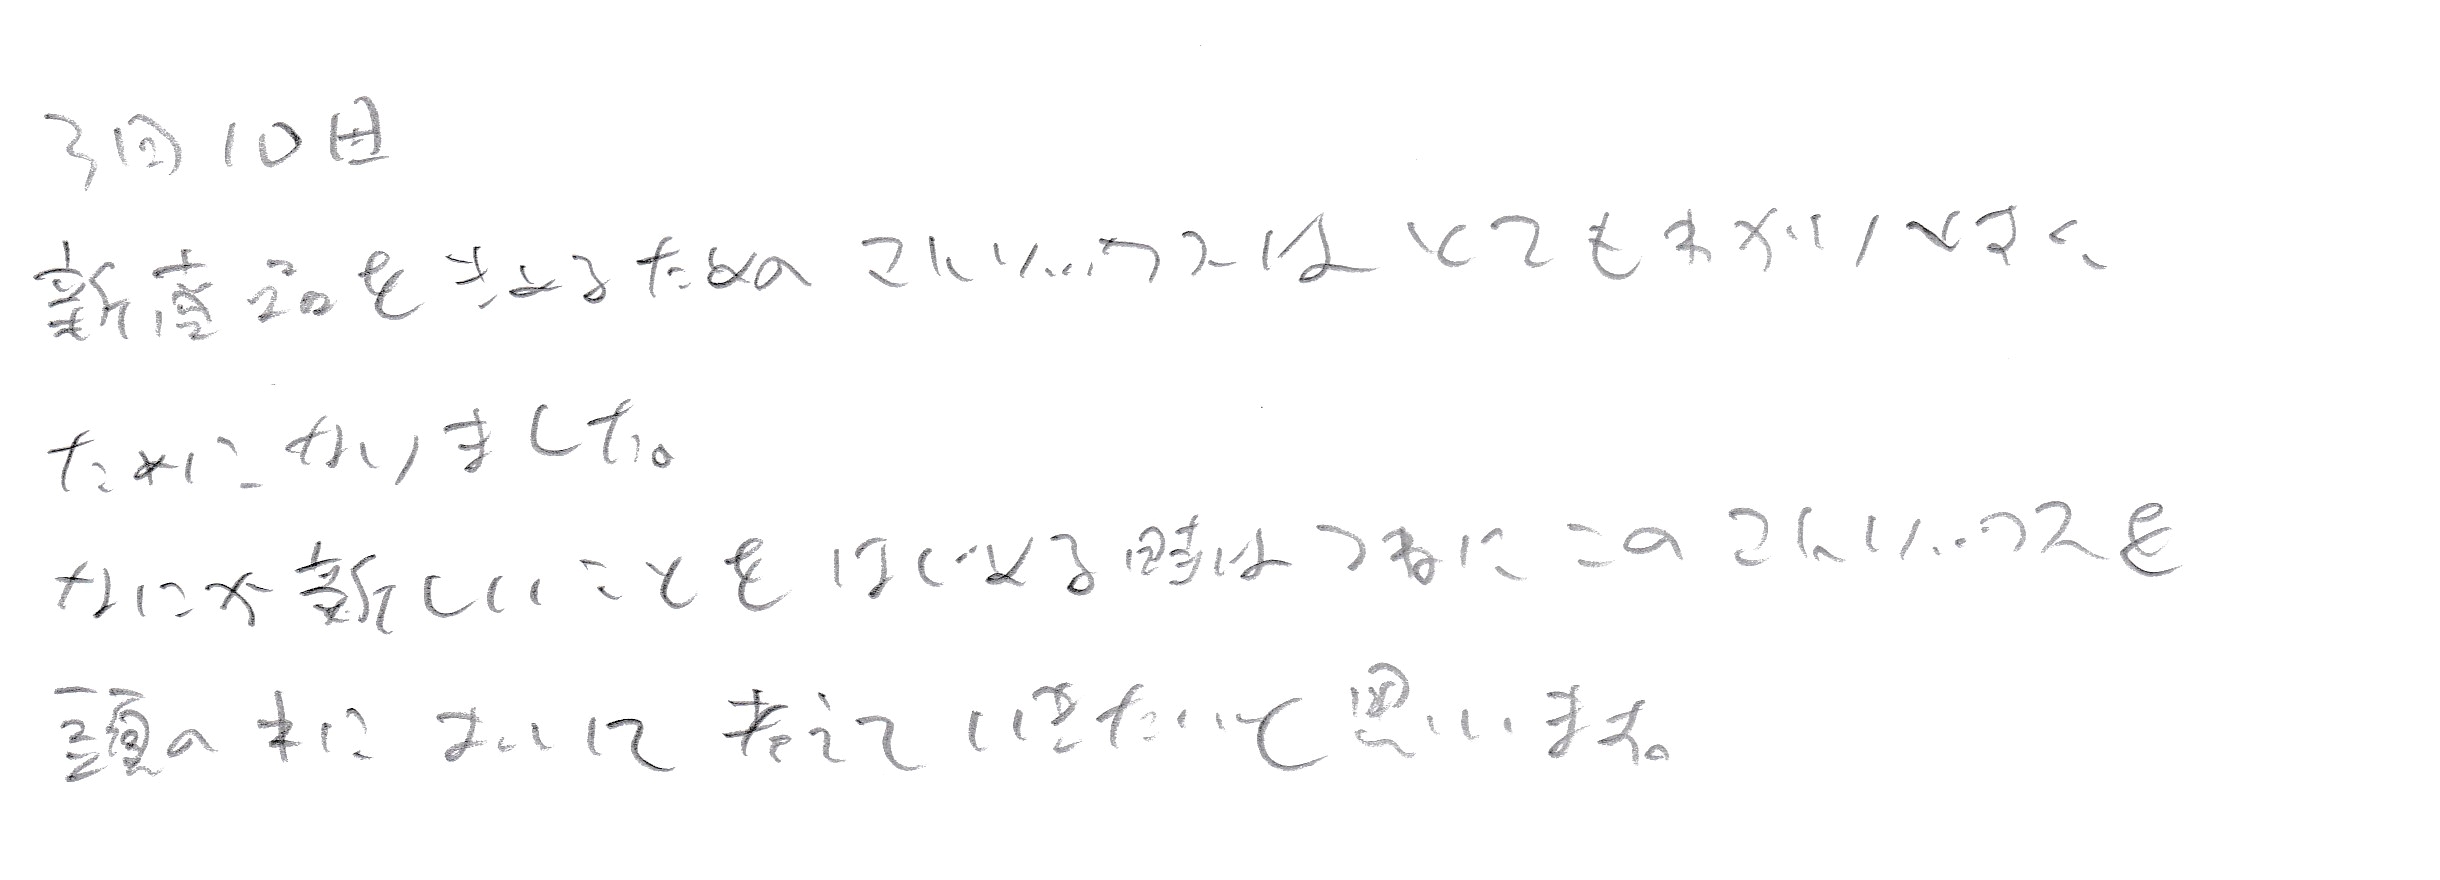 3回10日
新商品をきめるためのマトリックスはとてもわかりやすく、
ためになりました。
なにか新しいことをはじめる時はつねにこのマトリックスを
頭の中において考えていきたいと思います。